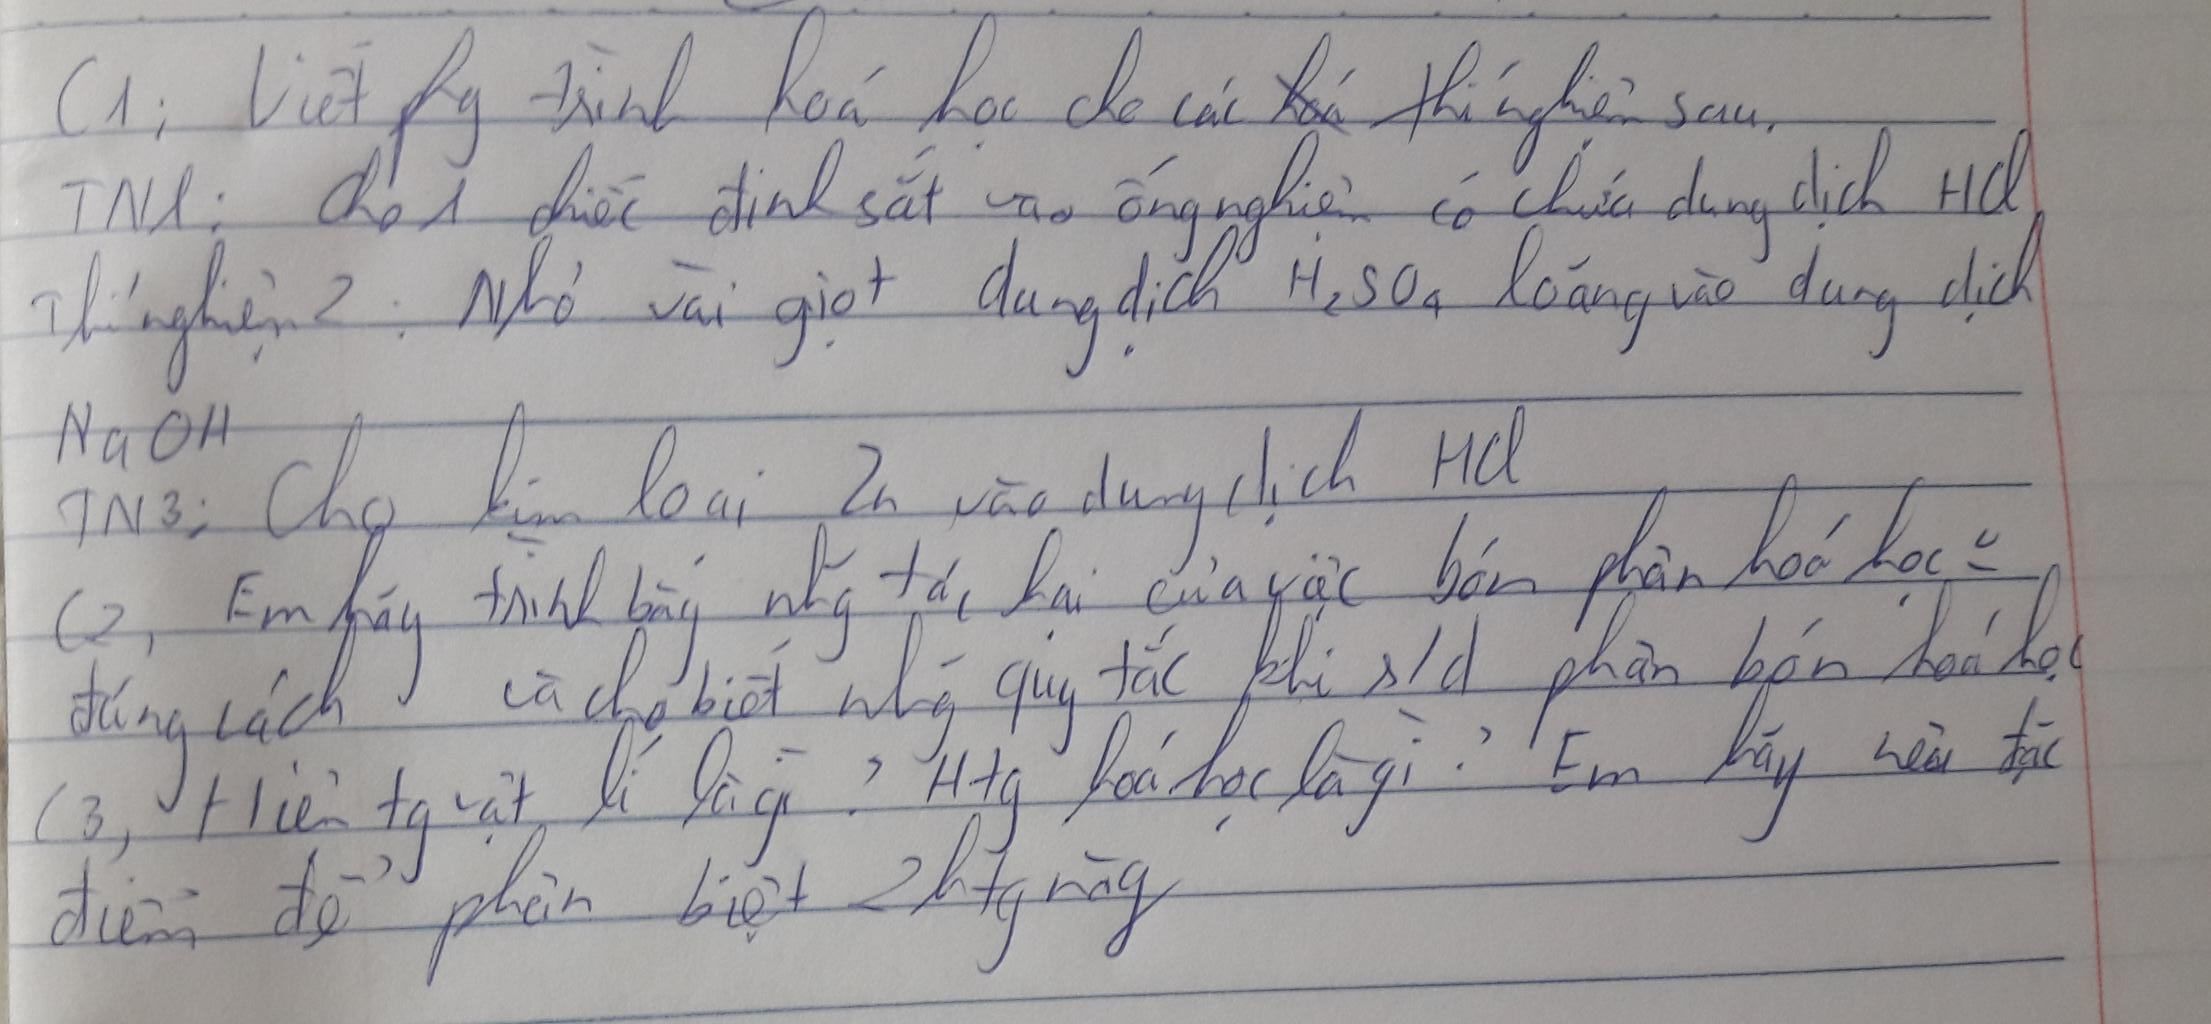 C1; Viết pg trình hoá học cho các hoá thí nghiệm sau.
TN1: Cho 1 chiếc đinh sắt vào ống nghiệm có chứa dung dịch HCl
Thí nghiệm 2: Nhỏ vài giọt dung dịch H₂SO₄ loãng vào dung dịch
NaOH
TN3: Cho kim loại Zn vào dung dịch HCl
C2, Em hãy trình bày nhg tác hại của việc bón phân hoá học
đúng cách và cho biết nhg quy tắc khi s/d phân bón hoá học
C3, Hiện tg vật lí là gì? Htg hoá học là gì? Em hãy nêu đặc
điểm để phân biệt 2 htg này